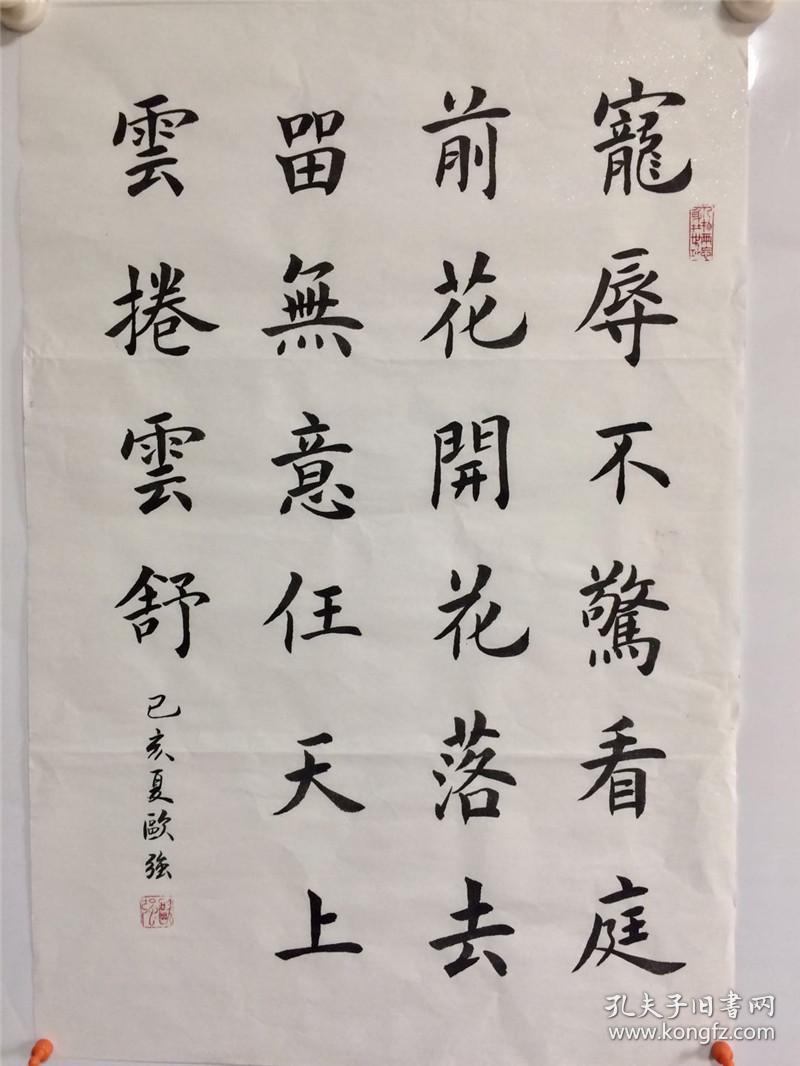 寵辱不驚看庭
前花開花落去
畱無意任天上
雲捲雲舒
己亥夏歐強
孔夫子旧書网
www.kongfz.com